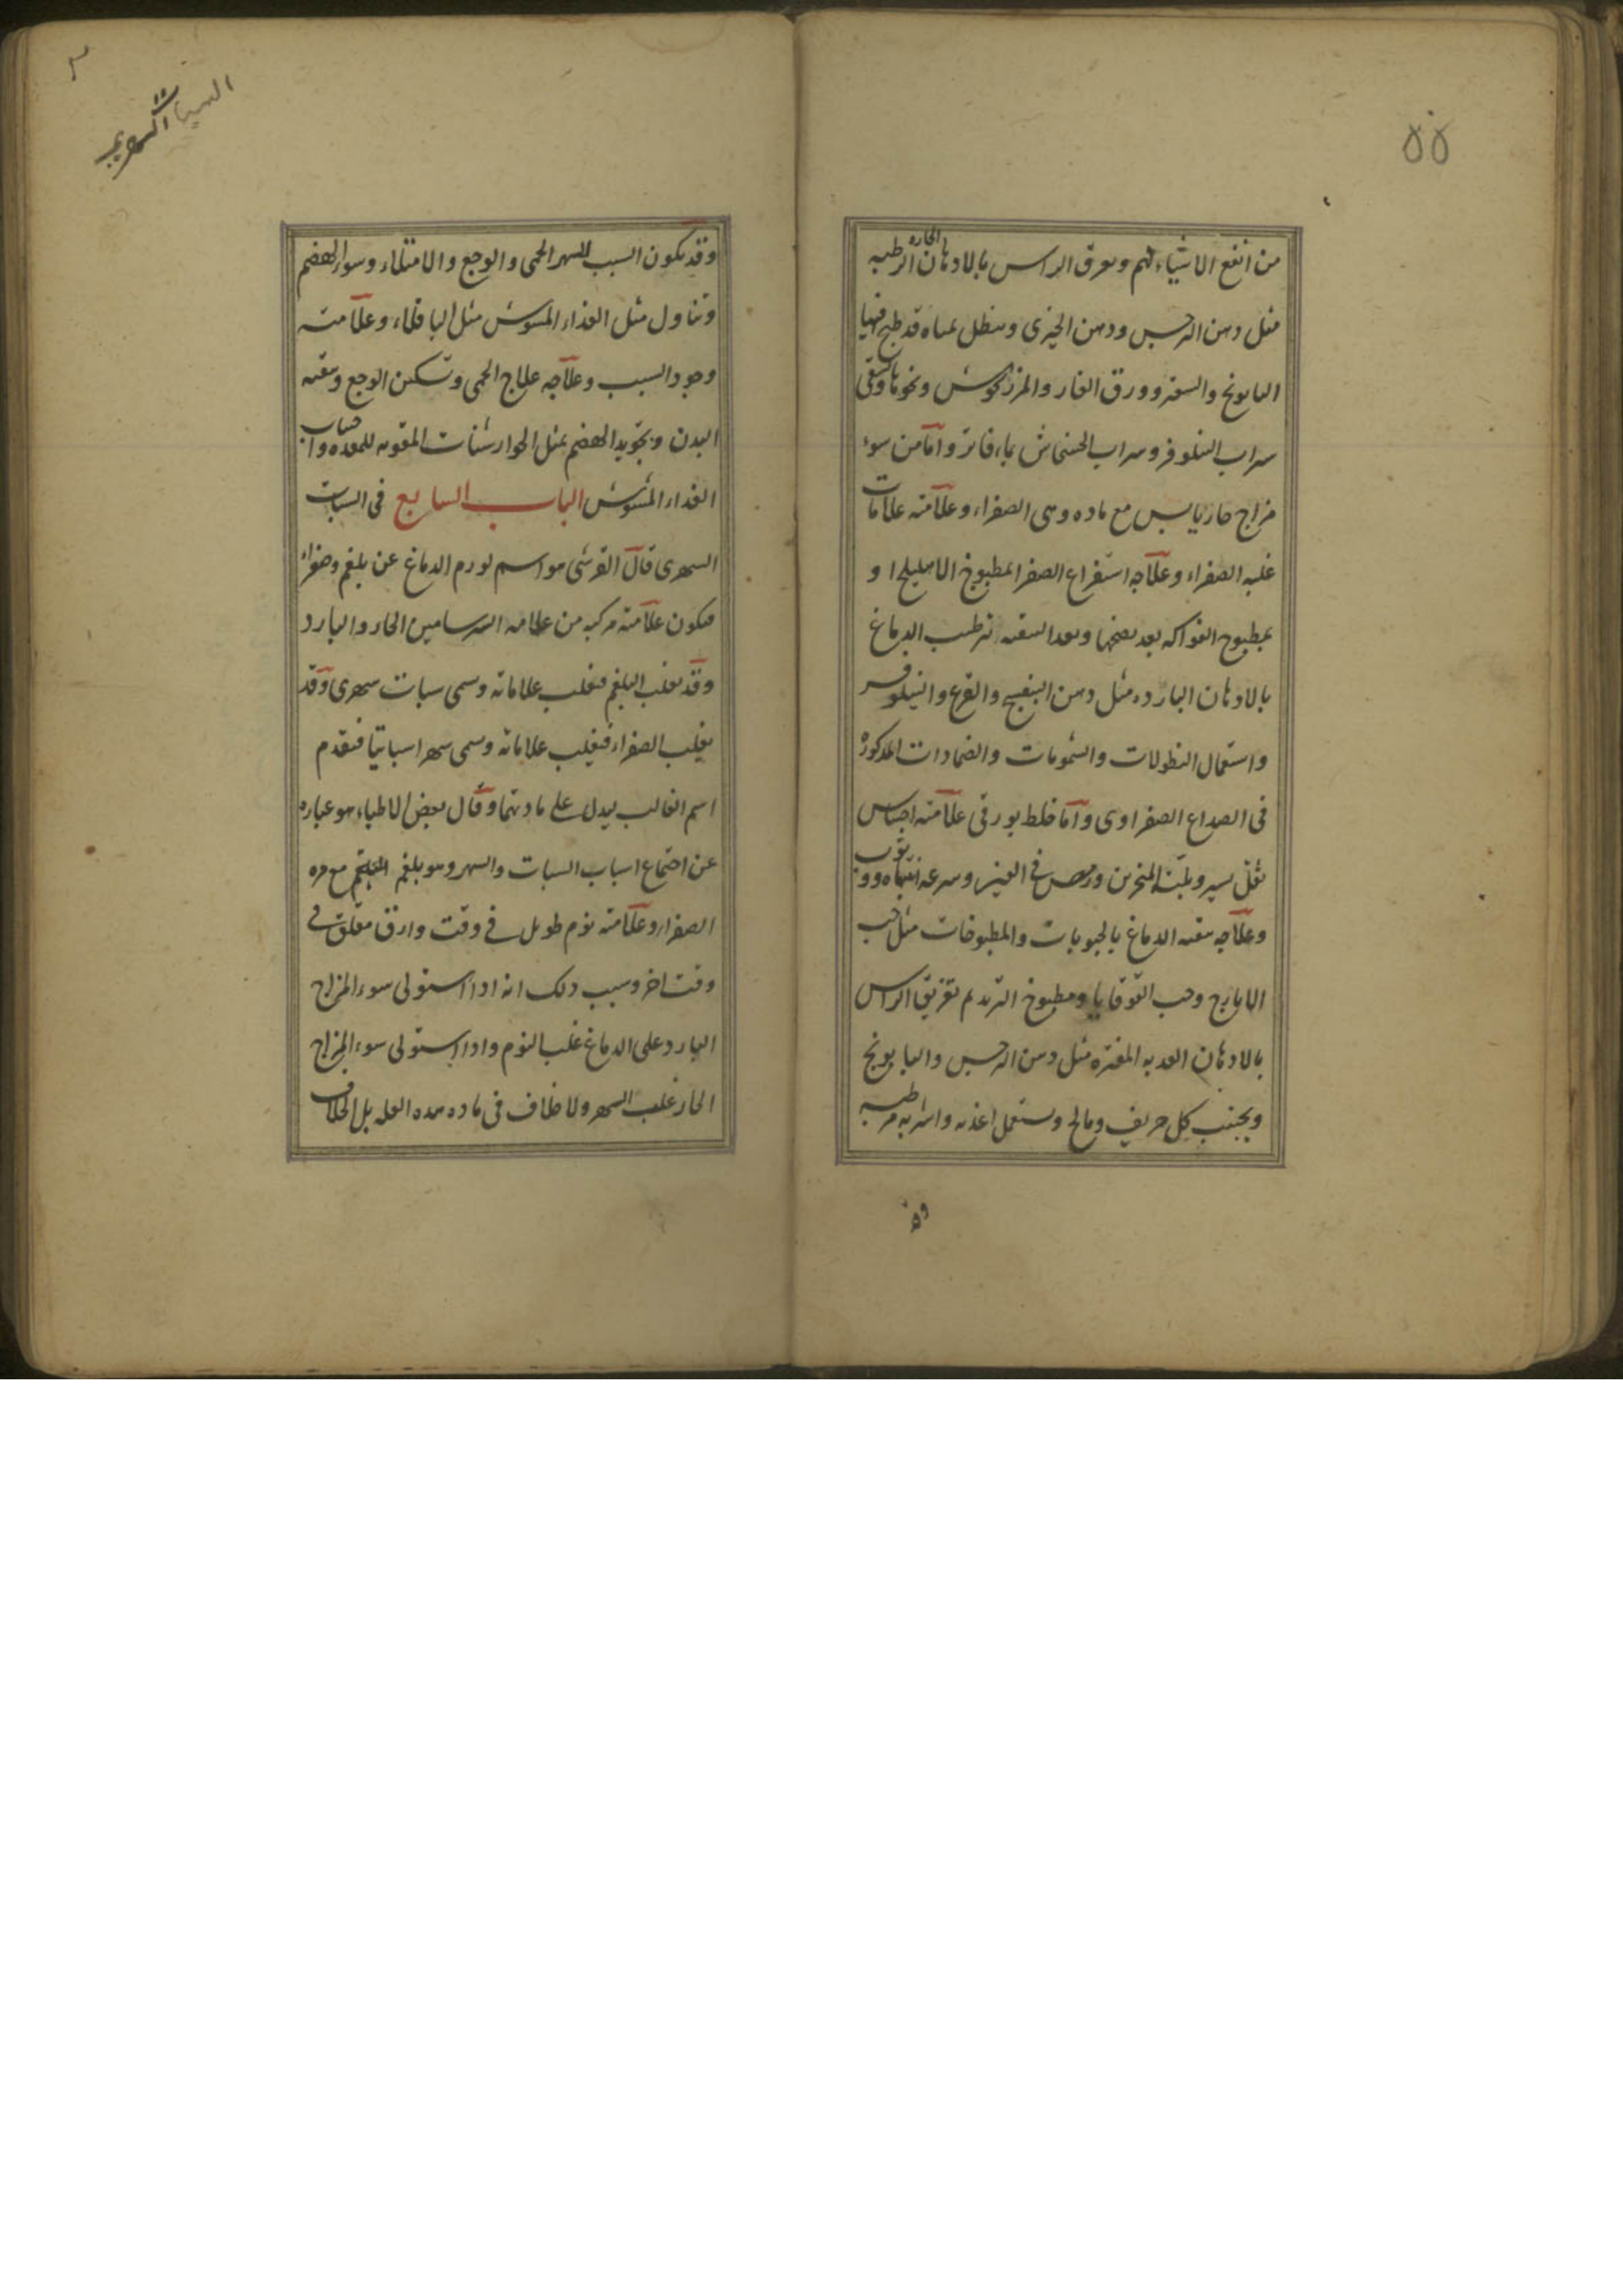 ٥٥
من انفع الاشياء لهم ويعرق الراس بالادهان الحاره الرطبه
مثل دهن النرجس ودهن الخيرى وينطل بمياه قد طبخ فيها
البابونج والسعتر وورق الغار والمرزنجوش ونحوها ويسقى
شراب النيلوفر وشراب الخشخاش بماء فاتر وآما من سوء
مزاج حار يابس مع ماده وهى الصفراء وعلآمته علامات
غلبه الصفراء وعلآجه استفراغ الصفرا بمطبوخ الاهليلج او
بمطبوخ الفواكه بعد نضجها وبعد التنقيه ترطيب الدماغ
بالادهان البارده مثل دهن البنفسج والقرع والنيلوفر
واستعمال النطولات والشمومات والضمادات المذكورة
فى الصداع الصفراوى وآما خلط بورقى علآمته احساس
بثقل يسير وبلة المنخرين ورمص فى العين وسرعه انتباه ووثوب
وعلآجه تنقيه الدماغ بالحبوبات والمطبوخات مثل حب
الايارج وحب القوقايا ومطبوخ التربد ثم تغريق الراس
بالادهان العذبه المفتره مثل دهن النرجس والبابونج
ويجتنب كل حريف ومالح ويستعمل اغذيه واشربه مرطبه
وقد
وقد يكون السبب للسهر الحمى والوجع والامتلاء وسوء الهضم
وتناول مثل الغذاء المشوش مثل الباقلاء وعلآمته
وجود السبب وعلآجه علاج الحمى وتسكين الوجع وتنقيه
البدن وتجويد الهضم بمثل الجوارشنات المقويه للمعده واجتناب
الغذاء المشوش الباب السابع فى السبات
السهرى قال القرشى هو اسم لورم الدماغ عن بلغم وصفراء
فيكون علآمته مركبه من علامه السرسامين الحار والبارد
وقد يغلب البلغم فيغلب علاماته وسمى سبات سهرى وقد
يغلب الصفراء فيغلب علاماته وسمى سهرا سباتيا فيتقدم
اسم الغالب ليدل على مادتهما وقال بعض الاطباء هو عباره
عن اجتماع اسباب السبات والسهر وهو بلغم مع مره
الصفراء وعلآمته نوم طويل فى وقت وارق مقلق فى
وقت اخر وسبب ذلك انه اذا استولى سوء المزاج
البارد على الدماغ غلب النوم واذا استولى سوء المزاج
الحار غلب السهر ولا خلاف فى ماده هذه العله بل الخلاف